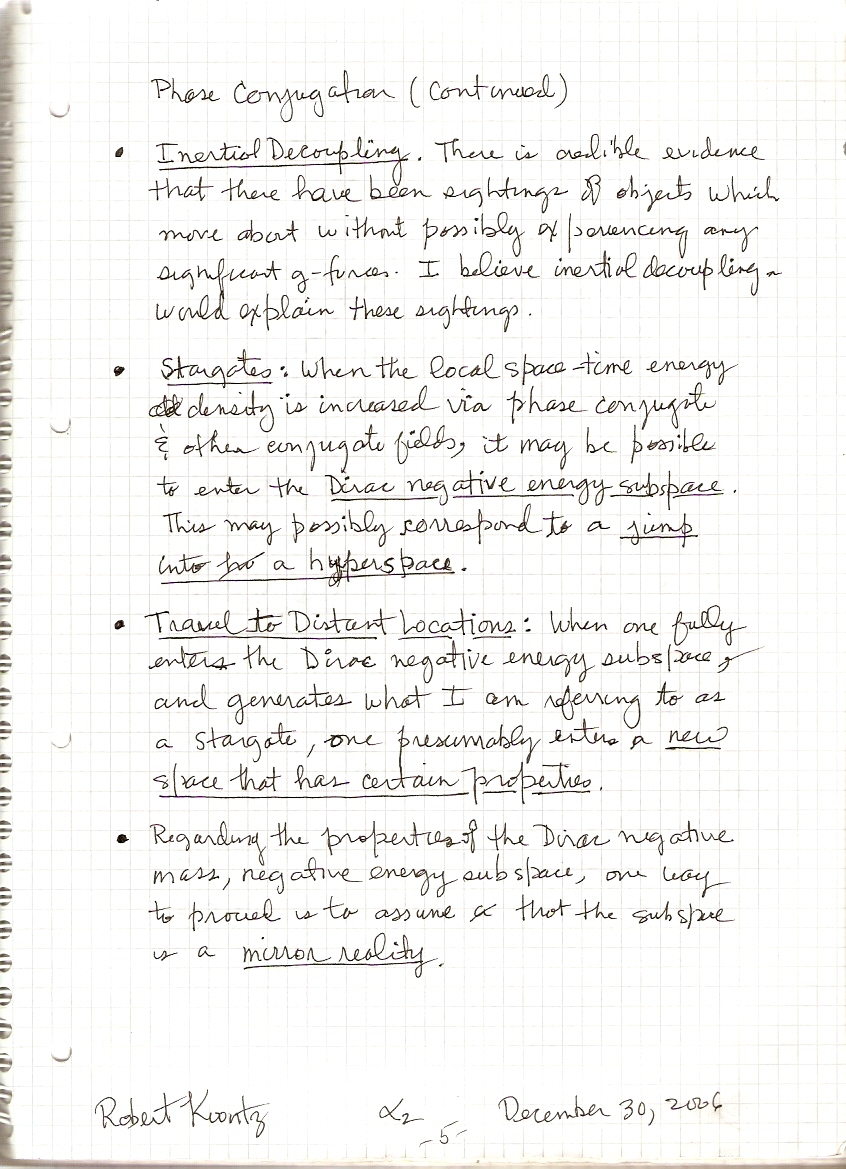 Phase Conjugation (Continued)
• Inertial Decoupling. There is credible evidence
that there have been sightings of objects which
move about without possibly experiencing any
significant g-forces. I believe inertial decoupling
would explain these sightings.
• Stargates: When the local space-time energy
density is increased via phase conjugate
& other conjugate fields, it may be possible
to enter the Dirac negative energy subspace.
This may possibly correspond to a jump
into a hyperspace.
• Travel to Distant Locations: When one fully
enters the Dirac negative energy subspace,
and generates what I am referring to as
a Stargate, one presumably enters a new
space that has certain properties.
• Regarding the properties of the Dirac negative
mass, negative energy subspace, one way
to proceed is to assume that the subspace
is a mirror reality.
Robert Koontz α2 December 30, 2006
-5-